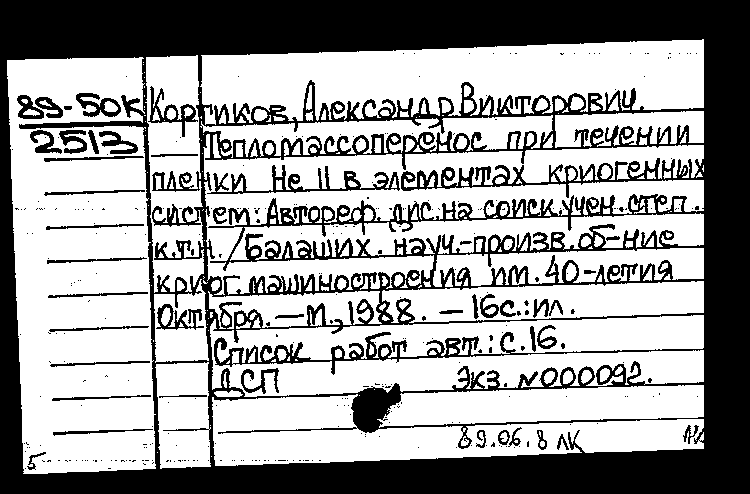 89-50К
2513
Кортиков, Александр Викторович.
Тепломассоперенос при течении
пленки He II в элементах криогенных
систем: Автореф. дис. на соиск. учен. степ.
к.т.н. / Балаших. науч.-произв. об-ние
криог. машиностроения им. 40-летия
Октября. — М., 1988. — 16с.: ил.
Список работ авт.: с. 16.
ДСП Экз. №000092.
89.06.8 ЛК
5